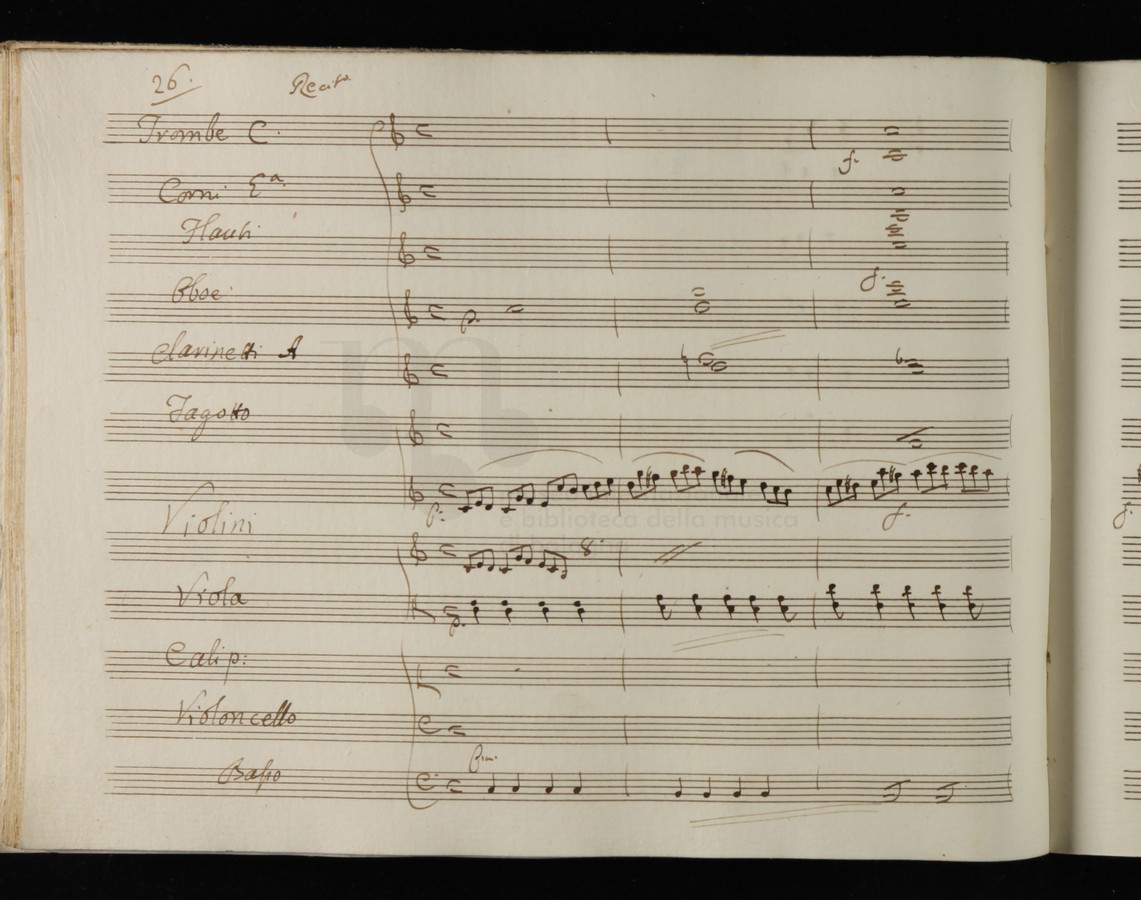 26.
Recit.
Trombe C.
Corni E.ª
Flauti
f.
Oboe
f.
p.
Clarinetti A
Fagotto
Violini
p.
f.
e biblioteca della musica
8.
Viola
p.
Calip:
Violoncello
Basso